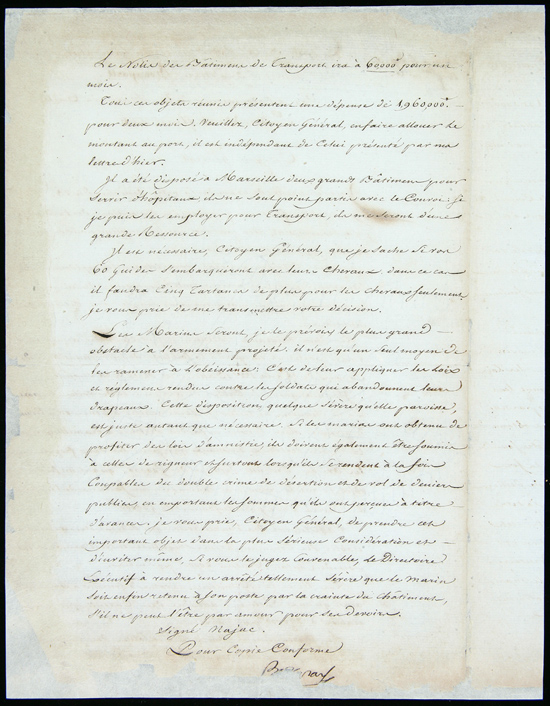 Le Nolis des Bâtimens de Transport ira à 60000# pour un
mois.
Tous ces objets réunis présentent une dépense de 1,960,000#
pour deux mois. Veuillez, Citoyen Général, en faire allouer le
montant au port, il est indépendant de Celui présenté par ma
lettre d'hier.
Il a été disposé à Marseille deux grands Bâtimens pour
servir d'hôpitaux, ils ne sont point partis avec le Convoi; si
je puis les employer pour Transport, ils me seront d'une
grande Ressource.
Il est nécessaire, Citoyen Général, que je sache si vos
60 Guides s'embarqueront avec leurs Chevaux, dans ce cas
il faudra Cinq Tartanes de plus pour les chevaux seulement,
je vous prie de me transmettre votre décision.
Les Marins seront, je le prévois, le plus grand
obstacle à l'armement projeté. il n'est qu'un seul moyen de
les ramener à l'obéissance: C'est de leur appliquer les Loix
et règlemens rendus contre les soldats qui abandonnent leurs
drapeaux. Cette disposition, quelque sévère qu'elle paroisse,
est juste autant que nécessaire. Si les marins ont obtenu de
profiter des loix d'amnistie, ils doivent également être soumis
à celles de rigueur et surtout lorsqu'ils se rendent à la fois
Coupables du double crime de désertion et de vol de deniers
publics, en emportant les sommes qu'ils ont perçues à titre
d'avances. je vous prie, Citoyen Général, de prendre cet
important objet dans la plus sérieuse Considération et
d'inviter même, si vous le jugez Convenable, le Directoire
Exécutif à rendre un arrêté tellement sévère que le Marin
soit enfin retenu à son poste par la crainte du châtiment,
s'il ne peut l'être par amour pour ses devoirs.
Signé Najac.
Pour Copie Conforme